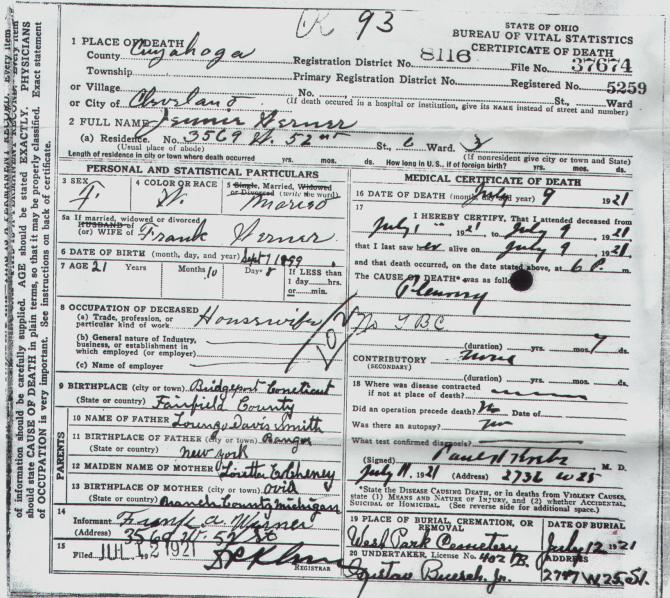 R 93
STATE OF OHIO
BUREAU OF VITAL STATISTICS
CERTIFICATE OF DEATH
1 PLACE OF DEATH
County Cuyahoga
Registration District No. 8116 File No. 37674
Township
Primary Registration District No. Registered No. 5259
or Village
No. St., Ward
or City of Cleveland
(If death occured in a hospital or institution, give its NAME instead of street and number)
2 FULL NAME Werner
(a) Residence. No. 3569 W. 52nd St., Ward.
(Usual place of abode) (If nonresident give city or town and State)
Length of residence in city or town where death occurred yrs. mos. ds. How long in U. S., if of foreign birth? yrs. mos. ds.
PERSONAL AND STATISTICAL PARTICULARS
3 SEX F. 4 COLOR OR RACE W. 5 Single, Married, Widowed or Divorced (write the word) Married
5a If married, widowed or divorced
HUSBAND of
(or) WIFE of Frank Werner
6 DATE OF BIRTH (month, day, and year) Sept 1 1899
7 AGE 21 Years Months 10 Days 8 If LESS than 1 day....hrs. or....min.
8 OCCUPATION OF DECEASED
(a) Trade, profession, or particular kind of work Housewife
(b) General nature of Industry, business, or establishment in which employed (or employer)
(c) Name of employer
102
9 BIRTHPLACE (city or town) Bridgeport Coneticut
(State or country) Fairfield County
PARENTS
10 NAME OF FATHER Davis Smith
11 BIRTHPLACE OF FATHER (city or town) Bangor
(State or country) new york
12 MAIDEN NAME OF MOTHER Loretta
13 BIRTHPLACE OF MOTHER (city or town) ovid
(State or country) Branch County Michigan
14
Informant Frank A Werner
(Address) 3569 W. 52 St
15
Filed JUL 12 1921
REGISTRAR
MEDICAL CERTIFICATE OF DEATH
16 DATE OF DEATH (month, day, and year) July 9 1921
17
I HEREBY CERTIFY, That I attended deceased from
July 1, 1921, to July 9, 1921,
that I last saw her alive on July 9, 1921,
and that death occurred, on the date stated above, at 6 P. m.
The CAUSE OF DEATH* was as follows:
Pleurisy
No TBC
(duration) yrs. mos. 7 ds.
CONTRIBUTORY none
(SECONDARY)
(duration) yrs. mos. ds.
18 Where was disease contracted
if not at place of death?
Did an operation precede death? No Date of
Was there an autopsy? no
What test confirmed diagnosis?
(Signed) Paul M. D.
July 11, 1921 (Address) 2736 W 25
*State the DISEASE CAUSING DEATH, or in deaths from VIOLENT CAUSES, state (1) MEANS AND NATURE OF INJURY, and (2) whether ACCIDENTAL, SUICIDAL or HOMICIDAL. (See reverse side for additional space.)
19 PLACE OF BURIAL, CREMATION, OR REMOVAL DATE OF BURIAL
West Park Cemetery July 12 1921
20 UNDERTAKER, License No. 402 B. ADDRESS
Gustave Buesch, Jr. 2747 W. 25. St.
of information should be carefully supplied. AGE should be stated EXACTLY. PHYSICIANS
should state CAUSE OF DEATH in plain terms, so that it may be properly classified. Exact statement
of OCCUPATION is very important. See instructions on back of certificate.